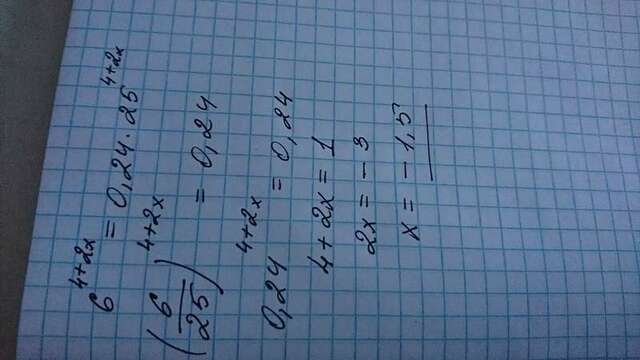 6^(4+2x) = 0,24 · 25^(4+2x)
(6/25)^(4+2x) = 0,24
0,24^(4+2x) = 0,24
4+2x = 1
2x = -3
x = -1,5